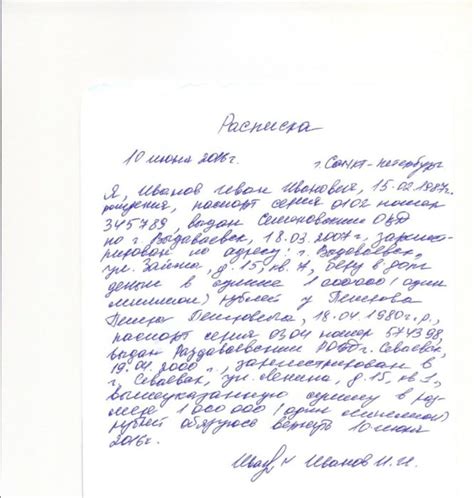 Расписка
10 июня 2016г. г. Санкт-Петербург
Я, Иванов Иван Иванович, 15.02.1987г.
рождения, паспорт серия 0102 номер
345789, выдан Семеновским ОВД
по г. Выдаваевск, 18.03.2007г., зарегист-
рирован по адресу: г. Выдаваевск,
ул. Зайца, д. 15, кв. 7, беру в долг
деньги в сумме 1000000 (один
миллион) рублей у Петрова
Петра Петровича, 18.04.1980г.р.,
паспорт серия 0304 номер 574398,
выдан Раздаваевским РОВД г. Севаевск,
19.04.2000, зарегистрирован в
г. Севаевск, ул. Ленина, д. 15, кв. 1,
вышеуказанную сумму в раз-
мере 1000000 (один миллион)
рублей обязуюсь вернуть 10 июня
2016г.
Иванов И.И.